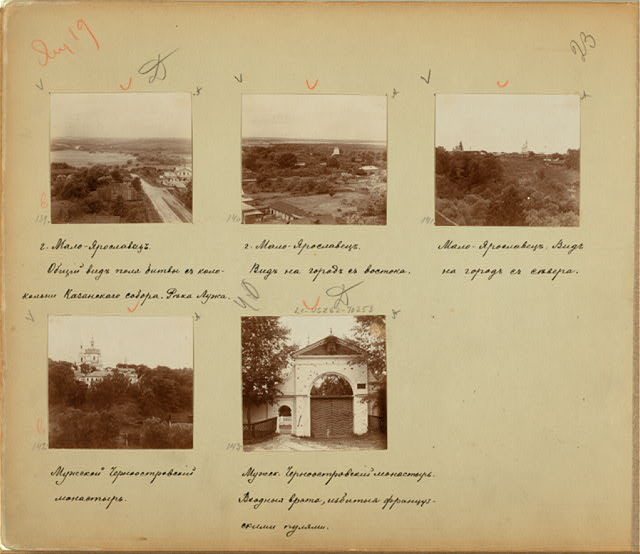 23
139
140
141
г. Мало-Ярославецъ.
Общій видъ поля битвы съ коло-
кольни Казанскаго собора. Рѣка Лужа.
г. Мало-Ярославецъ.
Видъ на городъ съ востока.
Мало-Ярославецъ. Видъ
на городъ съ сѣвера.
142
143
Мужской Черноостровскій
монастырь.
Мужск. Черноостровскій монастырь.
Входныя врата, избитыя француз-
скими пулями.